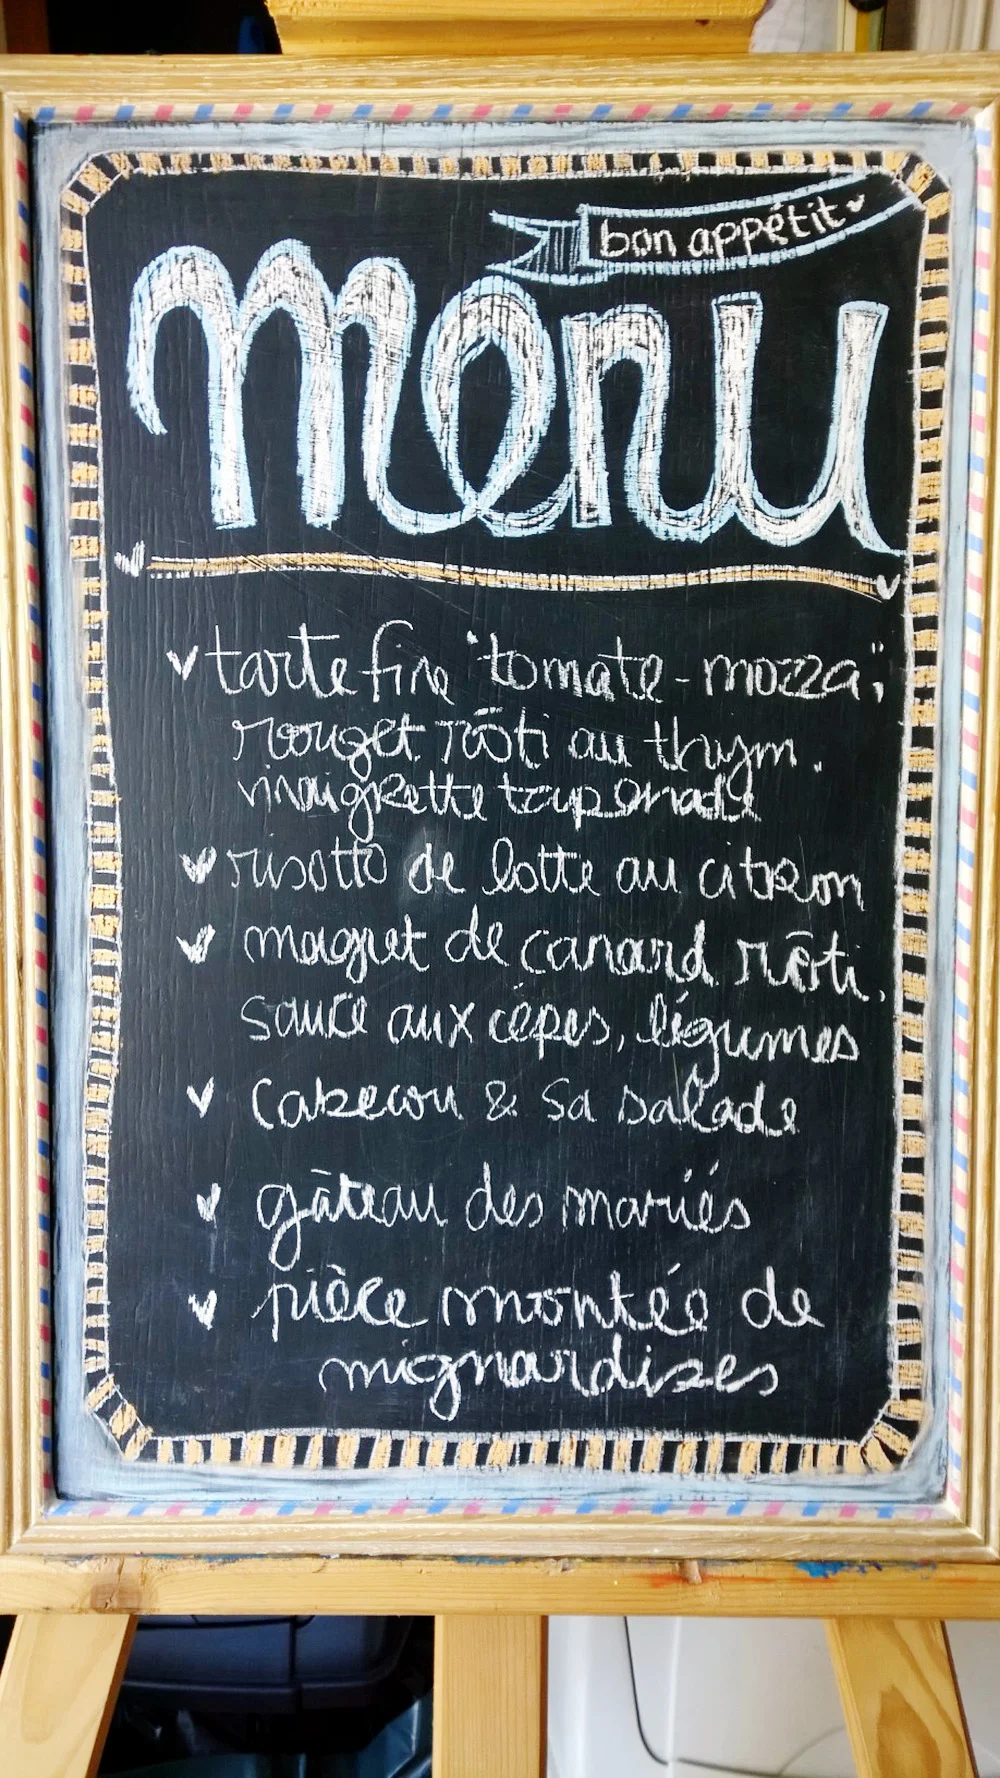 bon appétit
menu
tarte fine "tomate - mozza",
rouget rôti au thym.
vinaigrette tapenade
risotto de lotte au citron
magret de canard rôti.
sauce aux cèpes, légumes
Cabecou & sa salade
gâteau des mariés
pièce montée de
mignardises